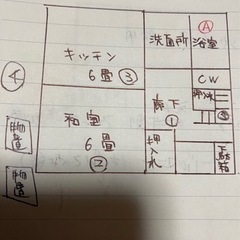 Ⓐ
キッチン
6畳 ③
洗面所
浴室
④
CW
押入れ
和室
6畳
②
廊下
①
押入れ
下駄箱
物置
物置